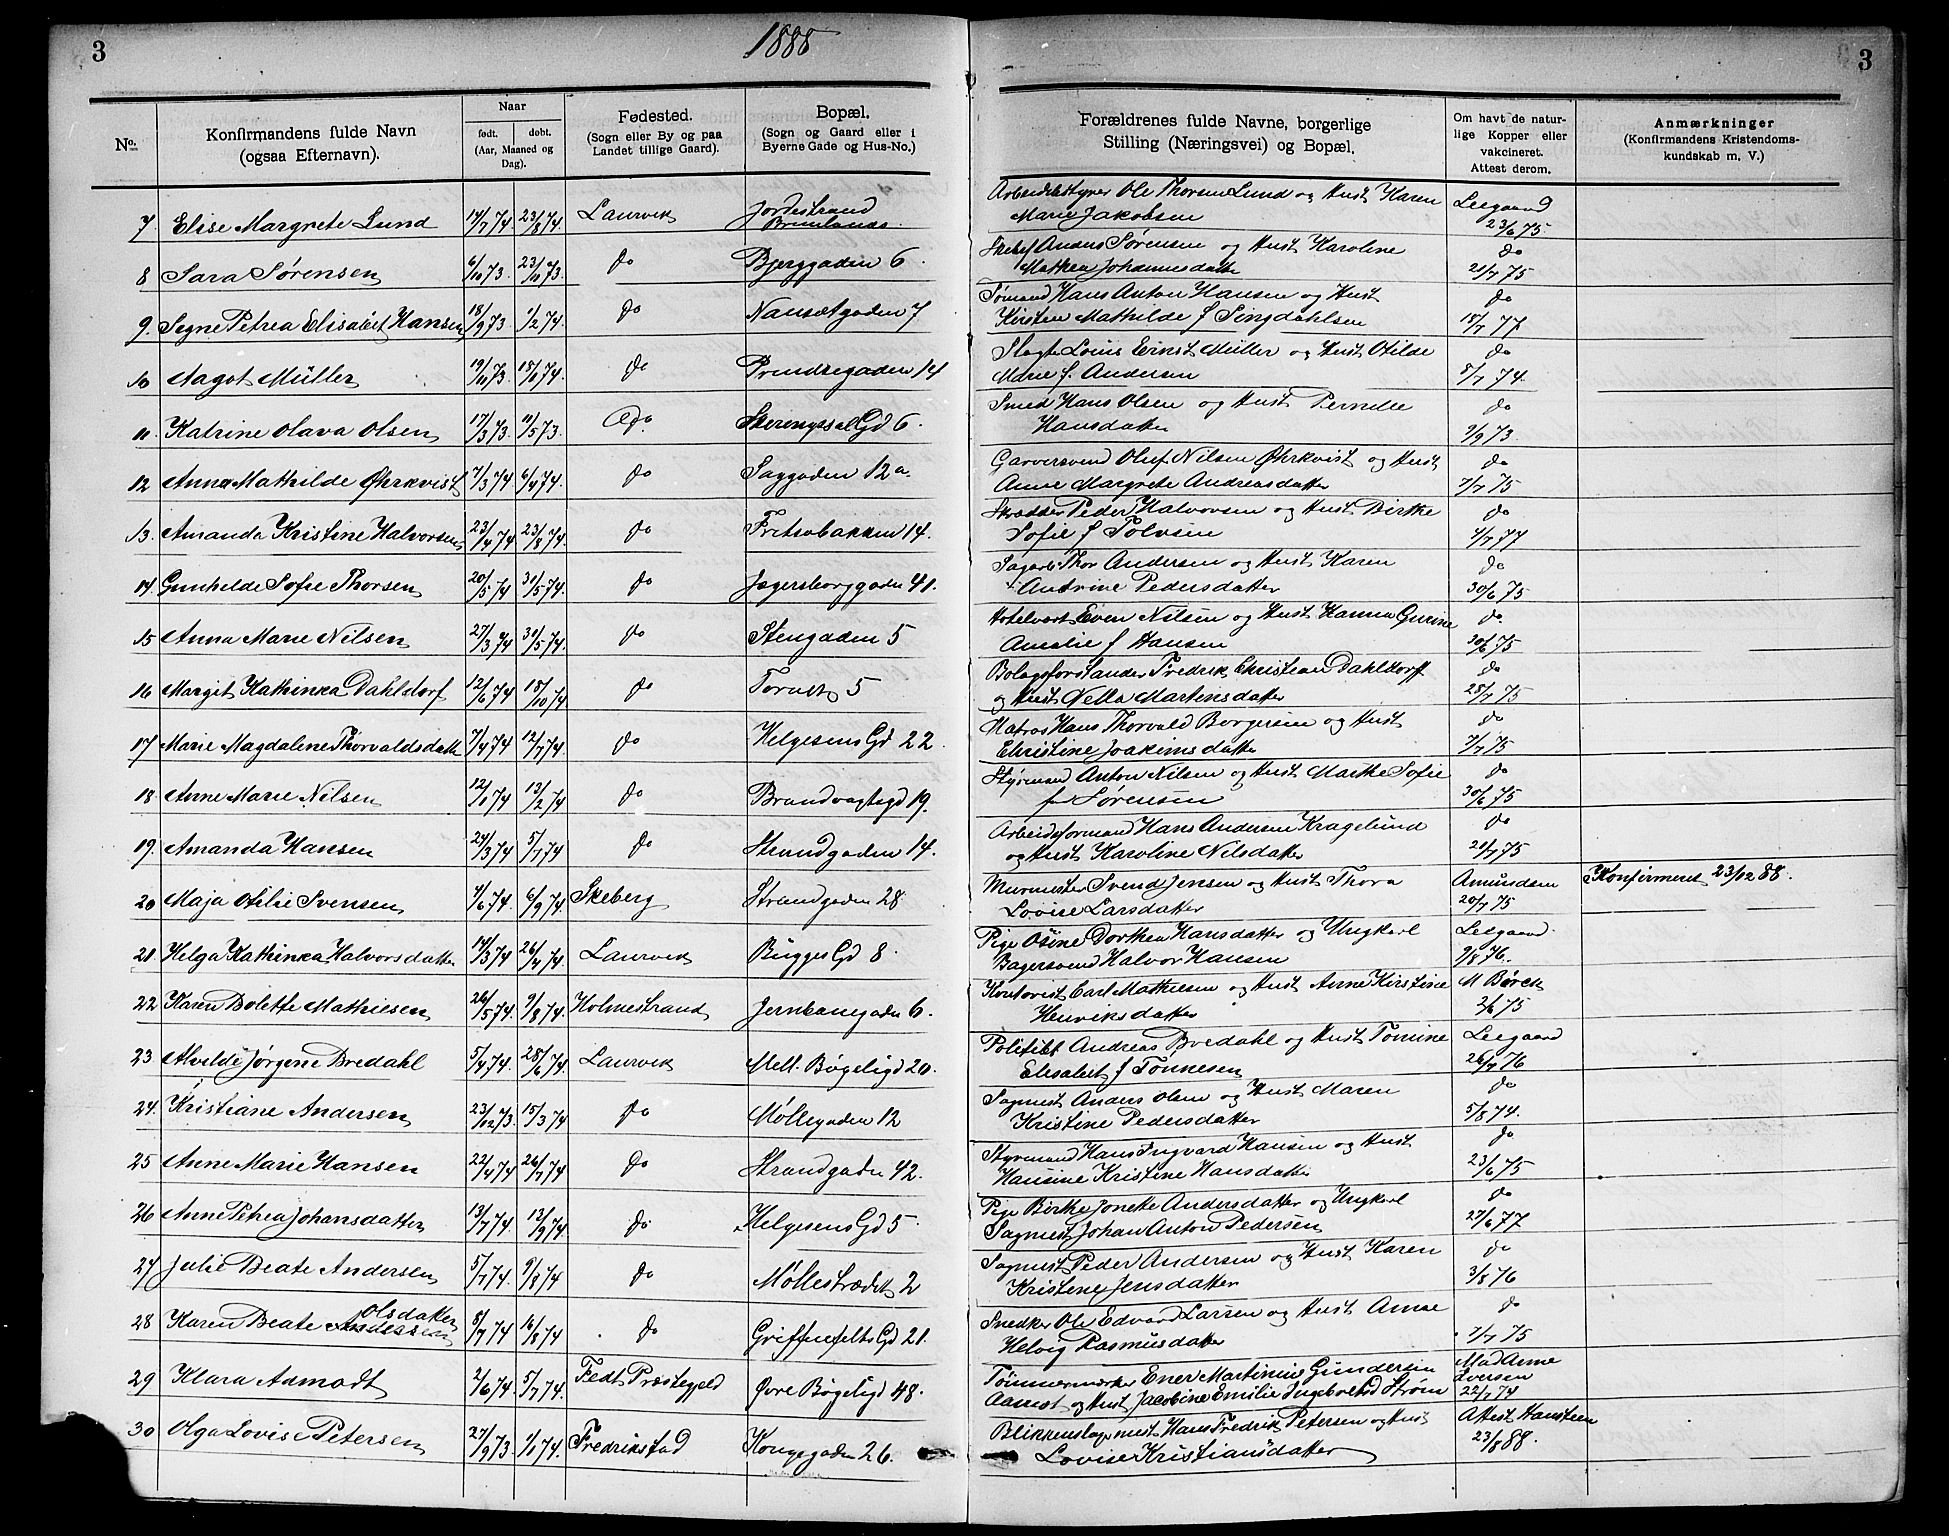 3
1888
3
No.
Konfirmandens fulde Navn
(ogsaa Efternavn).
Naar
født.
døbt.
(Aar, Maaned og
Dag).
Fødested.
(Sogn eller By og paa
Landet tillige Gaard).
Bopæl.
(Sogn og Gaard eller i
Byerne Gade og Hus-No.)
Forældrenes fulde Navne, borgerlige
Stilling (Næringsvei) og Bopæl.
Om havt de natur-
lige Kopper eller
vakcineret.
Attest derom.
Anmærkninger
(Konfirmandens Kristendoms-
kundskab m. V.)
7 Elise Margrete Lund 14/7 74 23/8 74. Laurvik Jordestrand
Arbeidsbestyrer Ole Thorsen Lund og Hust Karen
Marie Jakobsen
Leegaard
23/6 75.
8 Sara Sørensen 6/10 73. 23/11 73. do Bjerggaden 6.
Anders Sørensen og Hust Karoline
Mathea Johannesdatter
do
21/7 75
9. Signe Petrea Elisabet Hansen 18/9 73 1/2 74. do Nansetgaden 7
Sømand Hans Anton Hansen og Hust
Kirsten Mathilde f Singdahlsen
do
18/7 77
10 Aagot Müller 19/10 73. 18/1 74. do Prindsegaden 14
Slagter Louis Ernst Müller og Hust Otilde
Marie f. Andersen
do
8/7 74.
11 Katrine Olava Olsen 17/3 73. 11/5 73. do. Skeringssal Gd 6.
Smed Hans Olsen og Hust Pernille
Hansdatter
do
9/9 73.
12 Anna Mathilde Øhrkvist 7/3 74 6/4 74. do Saggaden 12 a.
Garversvend Oluf Nilsen Øhrkvist og Hust
Anne Margrete Andreasdatter
do
7/7 75
13. Amanda Kristine Halvorsen 23/4 74 23/8 74. do Fritsøbakken 14.
Skrædder Peder Halvorsen og Hust. Birthe
Sofie f Polvsen
do
4/7 77
14. Gunhilde Sofie Thorsen 20/5 74 31/5 74. do Jegersborggaden 41.
Sagarb. Thor Andersen og Hust Karen
Andrine Pedersdatter
do
30/6 75
15 Anna Marie Nilsen 27/3 74 31/5 74. do Stengaden 5
Hotelvært Even Nilsen og Hust Hanna Gurine
Amalie f Hansen
do.
30/6 75
16 Margit Kathinka Dahldorf 12/6 74 18/10 74. do Torvet 5
Bolagsforstander Fredrik Christian Dahldorff
og Hust Nella Martensdatter
do
28/7 75
17 Marie Magdalene Thorvaldsdatter 7/4 74 12/7 74. do Helgesens Gd 22.
Matros Hans Thorvald Borgersen og Hust
Christine Joakimsdatter
do
7/7 75
18. Anne Marie Nilsen 12/1 74 13/2 74. do Brandvagtsgd 19.
Styrmand Anton Nilsen og Hust Marthe Sofie
f Sørensen
do
30/6 75
19. Amanda Hansen 24/3 74 5/7 74 do Strandgaden 14.
Arbeidsformand Hans Andersen Kragelund
og Hust Karoline Nilsdatter
do
21/7 75
20 Maja Otilie Svensen 4/6 74. 6/9 74. Skeberg Strandgaden 28
Murmester Svend Jensen og Hust Thora
Lovise Larsdatter
Amundsen
20/7 75
Konfirmeret 23/12 88.
21. Helga Kathinka Halvorsdatter 14/3 74 26/4 74. Laurvik Bugges Gd 8.
Pige Osine Dorthea Hansdatter og Ungkarl
Bagersvend Halvor Hansen
Leegaard.
9/8 76.
22 Karen Bolette Mathiesen 26/5 74. 9/8 74. Holmestrand Jernbanegaden 6.
Carl Mathiesen og Hust Anne Kirstine
Henriksdatter
M Børch
2/6 75
23 Alvilde Jørgene Bredahl 5/4 74. 28/6 74. Laurvik Mell. Bøgeligd 20.
Politibt Andreas Bredahl og Hust Tomine
Elisabet f Tønnesen
Leegaard
26/7 76
24. Kristiane Andersen 23/12 73. 15/3 74. do Møllegaden 12
Sagmest Anders Olsen og Hust Maren
Kristine Pedersdatter
do
5/8 74.
25 Anne Marie Hansen 22/4 74 26/7 74 do Strandgaden 42.
Styrmand Hans Ingvard Hansen og Hust
Hansine Kristine Hansdatter
do
23/6 75
26 Anne Petrea Johansdatter 13/7 74. 13/9 74. do Helgesens Gd 5.
Pige Birthe Jonette Andersdatter og Ungkarl
Sagmest Johan Anton Pedersen
do
27/6 77
27 Julie Beate Andersen 5/7 74. 9/8 74 do Møllestrædet 2
Sagmest Peder Andersen og Hust Karen
Kristine Jensdatter
do
3/8 76
28 Karen Beate Olsdatter Andersen 8/7 74 16/8 74 do Griffenfelts Gd 21.
Snedker Ole Edvard Larsen og Hust Anne
Helvig Rasmusdatter
do
7/7 75
29 Klara Aamodt 2/6 74. 5/7 74. Fedt Præstegjeld Øvre Bøgeligd 48.
Tømmermærker Ener Martinius Gundersen
Aamot og Hust Jacobine Emilie Ingebretsd Strøm
Mad Anne
Iversen
22/7 74
30 Olga Lovise Petersen 27/9 73 1/1 74. Fredrikstad Kongegaden 26.
Blikkenslagermest Hans Fredrik Petersen og Hust
Lovise Kristiansdatter
Attest Hansteen
23/8 88.